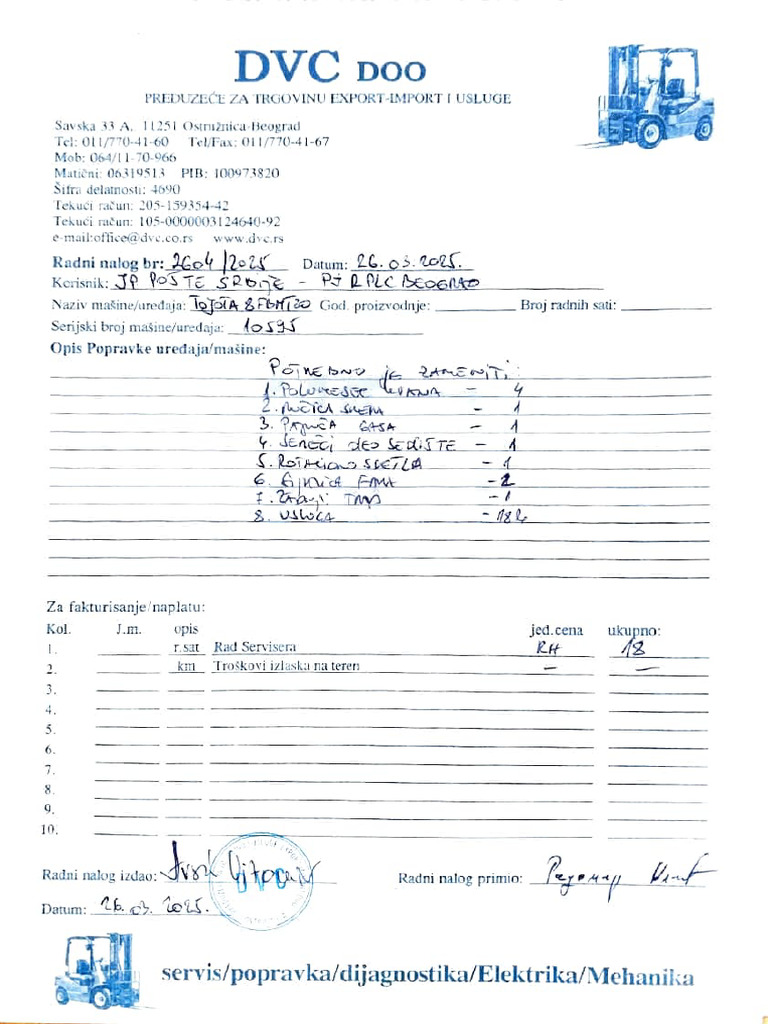 DVC DOO
PREDUZEĆE ZA TRGOVINU EXPORT-IMPORT I USLUGE
Savska 33 A, 11251 Ostružnica-Beograd
Tel: 011/770-41-60 Tel/Fax: 011/770-41-67
Mob: 064/11-70-966
Matični: 06319513 PIB: 100973820
Šifra delatnosti: 4690
Tekući račun: 205-159354-42
Tekući račun: 105-0000003124640-92
e-mail:office@dvc.co.rs www.dvc.rs
Radni nalog br: 2604/2025 Datum: 26.03.2025.
Korisnik: JP POŠTE SRBIJE - PJ RPLC BEOGRAD
Naziv mašine/uređaja: TOJOTA 8FBMT20 God. proizvodnje: Broj radnih sati:
Serijski broj mašine/uređaja: 10595
Opis Popravke uređaja/mašine:
POTREBNO JE ZAMENITI:
1. - 4
2. - 1
3. GASA - 1
4. DEO SEDIŠTE - 1
5. ROTACIONO SVETLA - 1
6. - 2
7. - 1
8. USLUGA - 18h
Za fakturisanje/naplatu:
Kol. J.m. opis jed.cena ukupno:
1. r.sat Rad Servisera RH 18
2. km Troškovi izlaska na teren — —
3.
4.
5.
6.
7.
8.
9.
10.
Radni nalog izdao: DVC Radni nalog primio: Радомир
Datum: 26.03.2025.
servis/popravka/dijagnostika/Elektrika/Mehanika